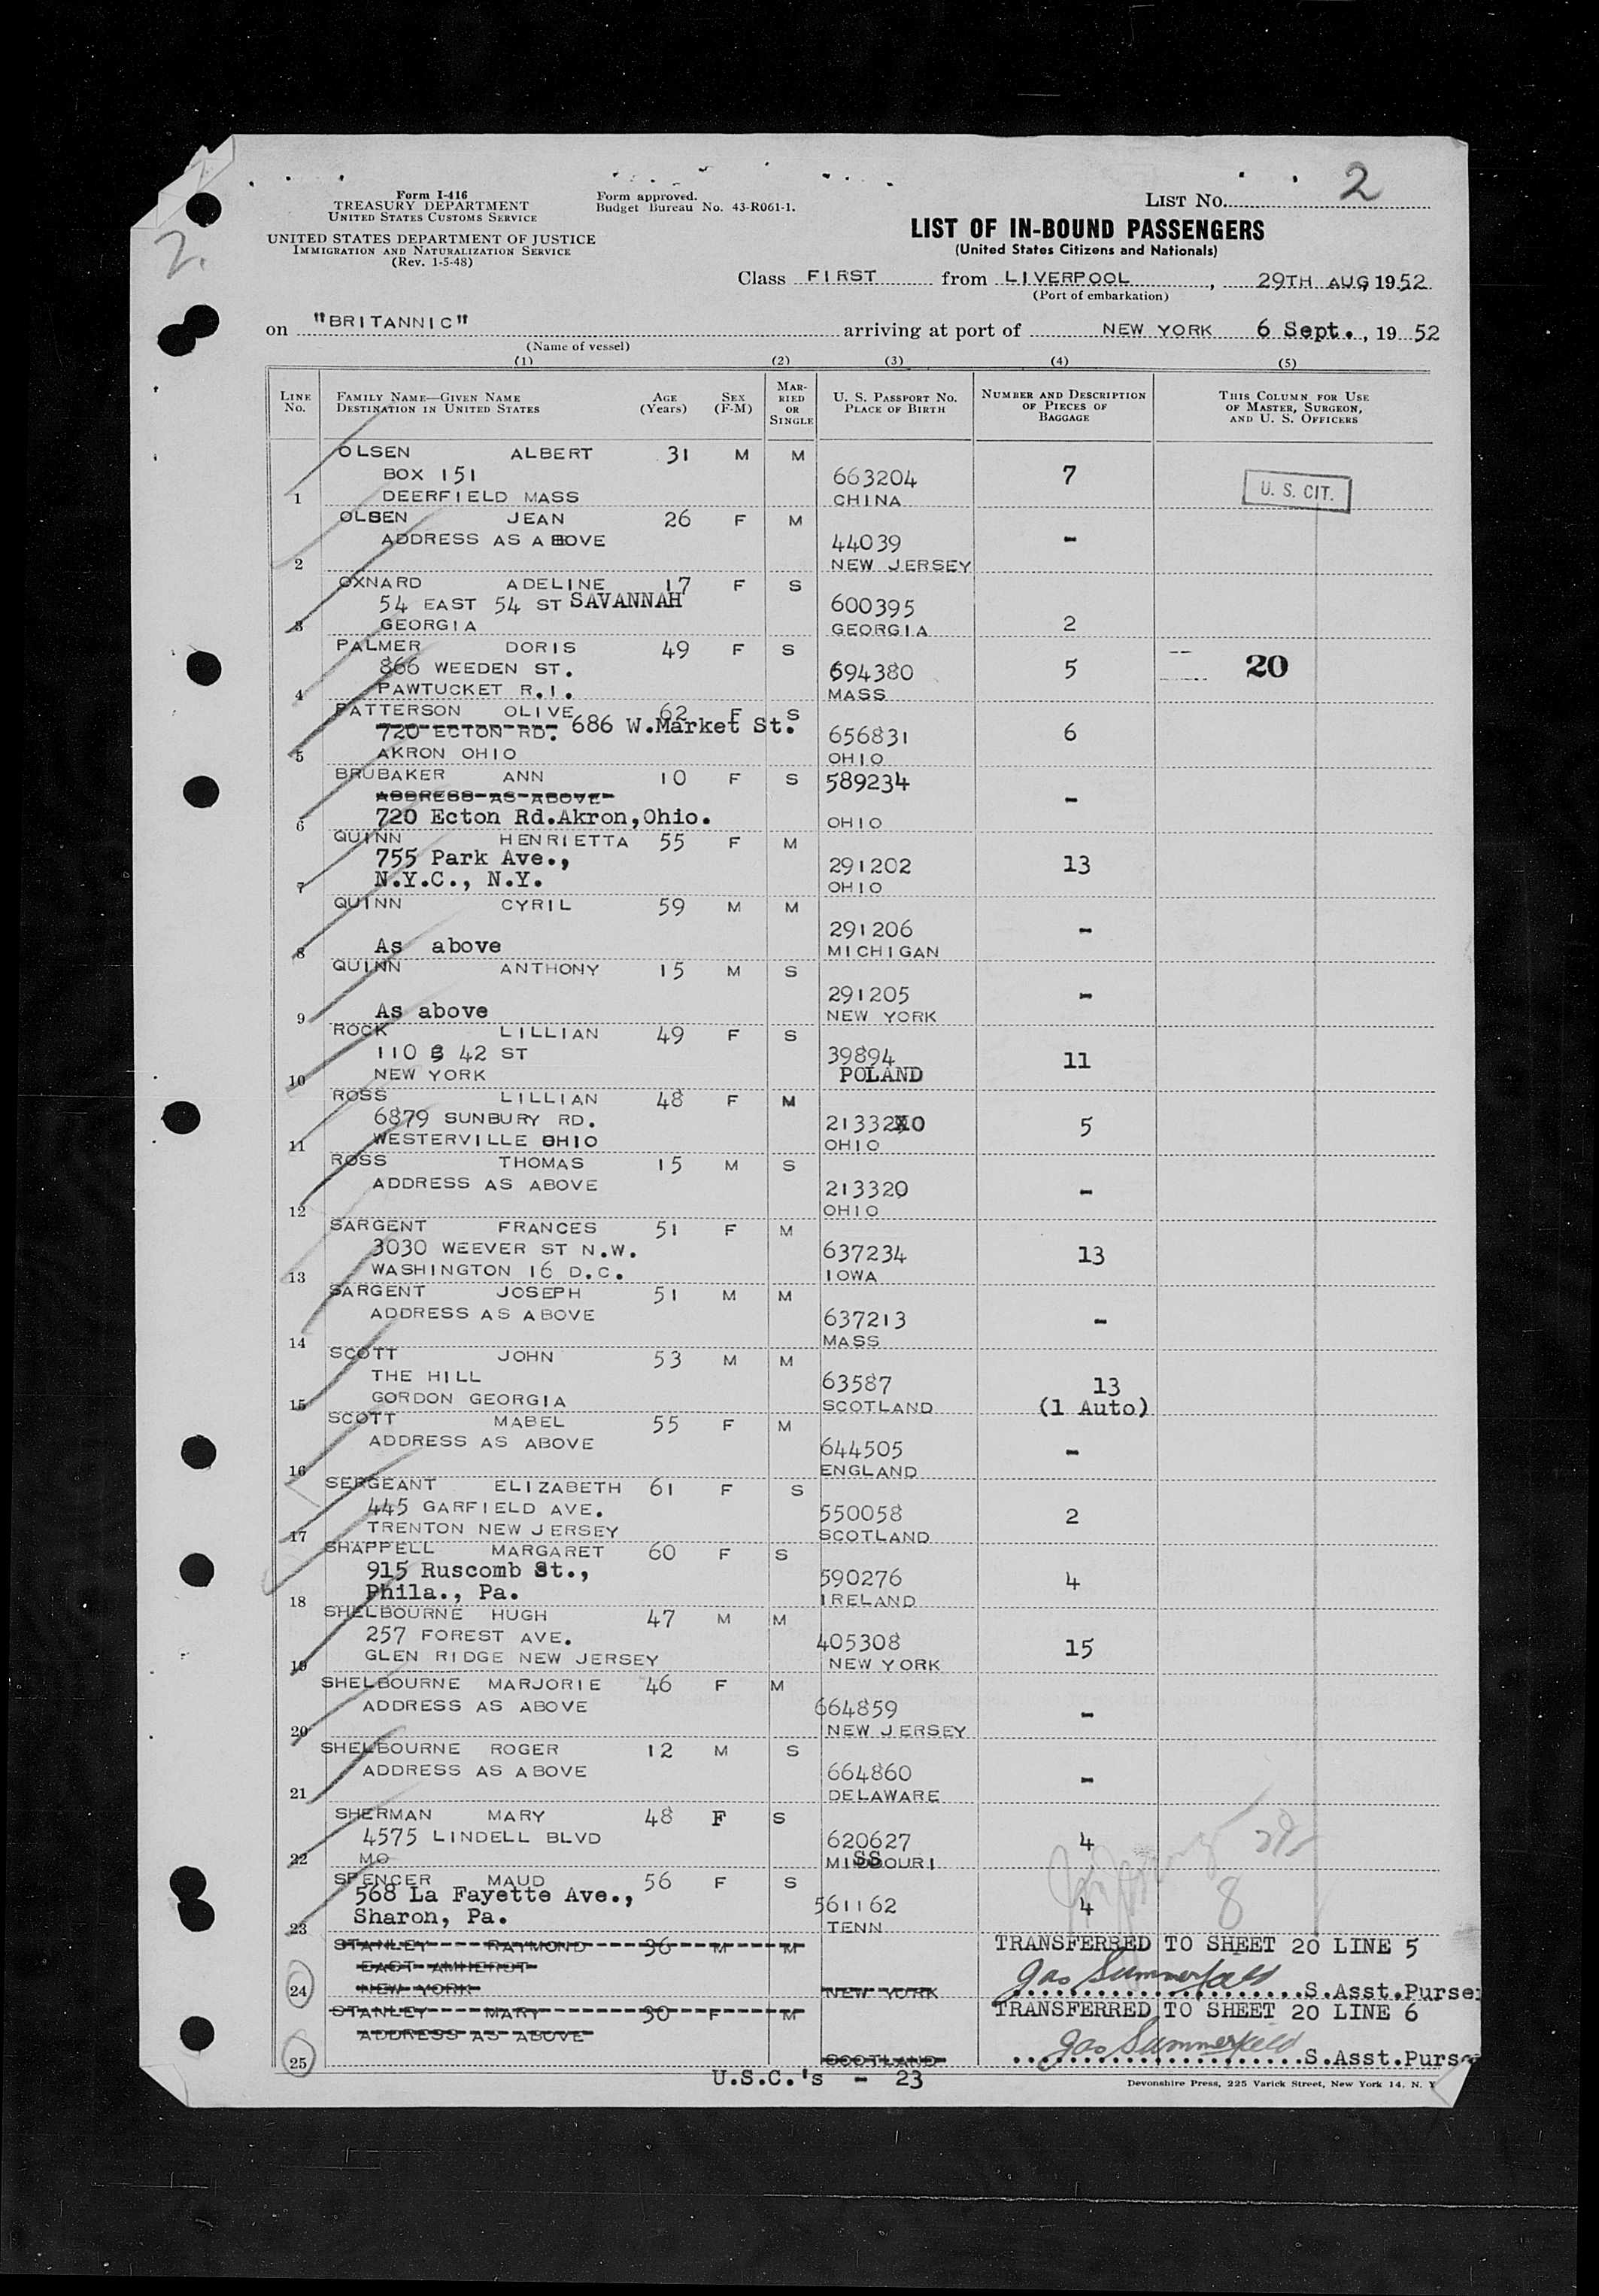 2
2.
Form I-416
TREASURY DEPARTMENT
UNITED STATES CUSTOMS SERVICE
UNITED STATES DEPARTMENT OF JUSTICE
IMMIGRATION AND NATURALIZATION SERVICE
(Rev. 1-5-48)
Form approved.
Budget Bureau No. 43-R061-1.
LIST NO.
LIST OF IN-BOUND PASSENGERS
(United States Citizens and Nationals)
Class FIRST from LIVERPOOL, 29TH AUG, 1952
(Port of embarkation)
on "BRITANNIC" arriving at port of NEW YORK 6 Sept., 1952
(Name of vessel)
(1) (2) (3) (4) (5)
LINE NO. FAMILY NAME—GIVEN NAME DESTINATION IN UNITED STATES AGE (YEARS) SEX (F-M) MARRIED OR SINGLE U. S. PASSPORT NO. PLACE OF BIRTH NUMBER AND DESCRIPTION OF PIECES OF BAGGAGE THIS COLUMN FOR USE OF MASTER, SURGEON, AND U. S. OFFICERS
OLSEN ALBERT 31 M M
BOX 151 663204 7
1 DEERFIELD MASS CHINA U. S. CIT.
OLSEN JEAN 26 F M
ADDRESS AS ABOVE 44039 -
2 NEW JERSEY
OXNARD ADELINE 17 F S
54 EAST 54 ST SAVANNAH 600395
3 GEORGIA GEORGIA 2
PALMER DORIS 49 F S
866 WEEDEN ST. 694380 5 20
4 PAWTUCKET R.I. MASS
PATTERSON OLIVE 62 F S
720 ECTON RD. 686 W.Market St. 656831 6
5 AKRON OHIO OHIO
BRUBAKER ANN 10 F S 589234
ADDRESS AS ABOVE -
6 720 Ecton Rd.Akron,Ohio. OHIO
QUINN HENRIETTA 55 F M
755 Park Ave., 291202 13
7 N.Y.C., N.Y. OHIO
QUINN CYRIL 59 M M
291206 -
8 As above MICHIGAN
QUINN ANTHONY 15 M S
291205 -
9 As above NEW YORK
ROCK LILLIAN 49 F S
110 E 42 ST 39894 11
10 NEW YORK POLAND
ROSS LILLIAN 48 F M
6879 SUNBURY RD. 5
11 WESTERVILLE OHIO OHIO
ROSS THOMAS 15 M S
ADDRESS AS ABOVE 213320 -
12 OHIO
SARGENT FRANCES 51 F M
3030 WEEVER ST N.W. 637234 13
13 WASHINGTON 16 D.C. IOWA
SARGENT JOSEPH 51 M M
ADDRESS AS ABOVE 637213 -
14 MASS
SCOTT JOHN 53 M M
THE HILL 63587 13
15 GORDON GEORGIA SCOTLAND (1 Auto)
SCOTT MABEL 55 F M
ADDRESS AS ABOVE 644505 -
16 ENGLAND
SERGEANT ELIZABETH 61 F S
445 GARFIELD AVE. 550058 2
17 TRENTON NEW JERSEY SCOTLAND
SHAPPELL MARGARET 60 F S
915 Ruscomb St., 590276 4
18 Phila., Pa. IRELAND
SHELBOURNE HUGH 47 M M
257 FOREST AVE. 405308 15
19 GLEN RIDGE NEW JERSEY NEW YORK
SHELBOURNE MARJORIE 46 F M
ADDRESS AS ABOVE 664859 -
20 NEW JERSEY
SHELBOURNE ROGER 12 M S
ADDRESS AS ABOVE 664860 -
21 DELAWARE
SHERMAN MARY 48 F S
4575 LINDELL BLVD 620627 4
22 MO MISSOURI
SPENCER MAUD 56 F S
568 La Fayette Ave., 561162 4 8
23 Sharon, Pa. TENN
STANLEY RAYMOND 36 M M TRANSFERRED TO SHEET 20 LINE 5
EAST AMHERST
24 NEW YORK NEW YORK Jas Summerfield S.Asst.Purser
STANLEY MARY 30 F M TRANSFERRED TO SHEET 20 LINE 6
ADDRESS AS ABOVE
25 SCOTLAND Jas Summerfield S.Asst.Purse
U.S.C.'s - 23
Devonshire Press, 225 Varick Street, New York 14, N. Y